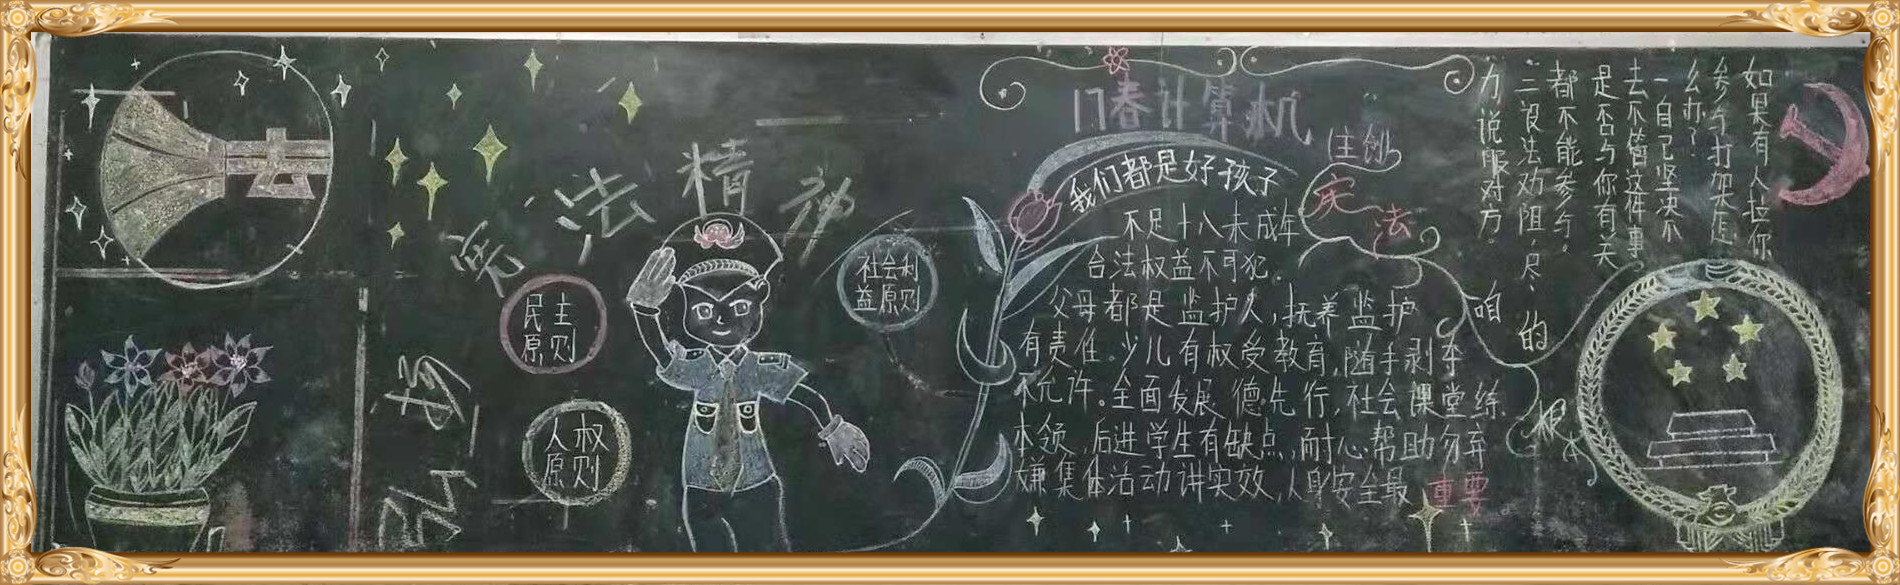 法
弘扬
宪法精神
民主
原则
人权
原则
社会利
益原则
17春计算机
主创
我们都是好孩子
不足十八未成年
合法权益不可犯.
父母都是监护人,抚养监护
有责任。少儿有权受教育,随手剥夺
不允许。全面发展德先行,社会课堂练
本领,后进学生有缺点,耐心帮助勿弃
嫌集体活动讲实效,人身安全最重要
宪法
咱的根本
如果有人拉你
参与打架怎
么办?
一自己坚决不
去不管这件事
是否与你有关
都不能参与。
三设法劝阻,尽
力说服对方。